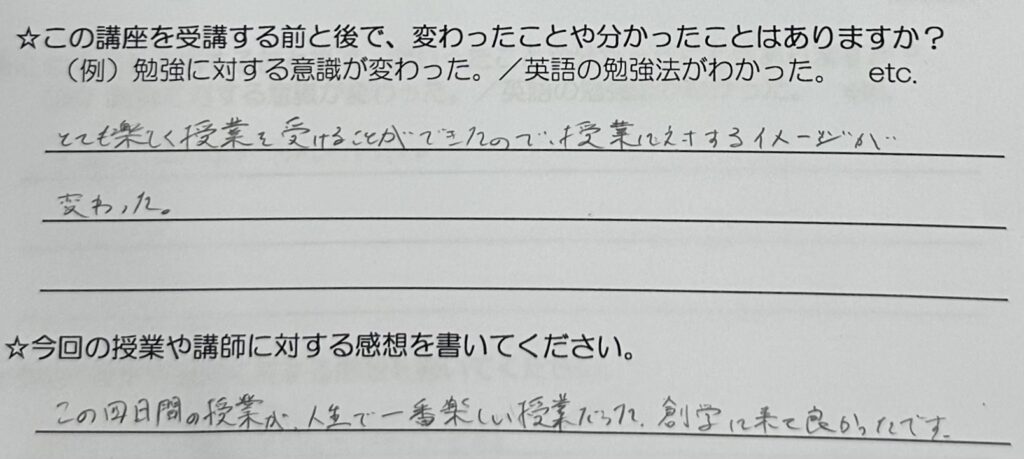 ☆この講座を受講する前と後で、変わったことや分かったことはありますか？
（例）勉強に対する意識が変わった。／英語の勉強法がわかった。 etc.
とても楽しく授業を受けることができたので、授業に対するイメージが
変わった。
☆今回の授業や講師に対する感想を書いてください。
この四日間の授業が、人生で一番楽しい授業だった、創学に来て良かったです。